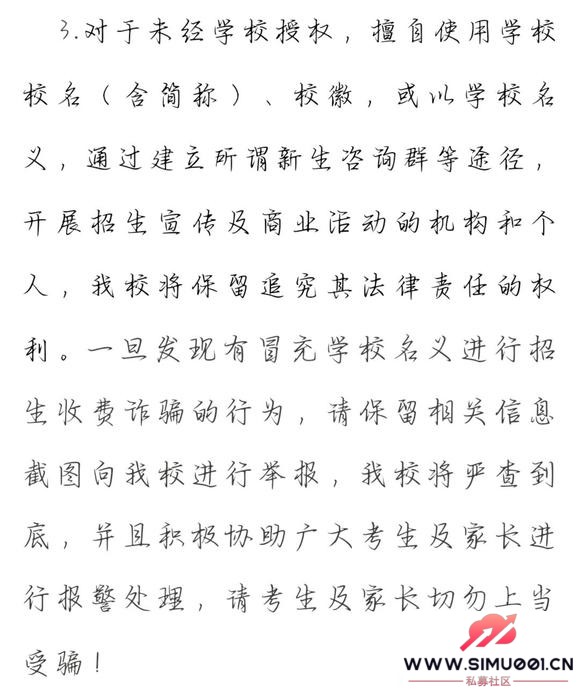 3.对于未经学校授权，擅自使用学校
校名（含简称）、校徽，或以学校名
义，通过建立所谓新生咨询群等途径，
开展招生宣传及商业活动的机构和个
人，我校将保留追究其法律责任的权
利。一旦发现有冒充学校名义进行招
生收费诈骗的行为，请保留相关信息
截图向我校进行举报，我校将严查到
底，并且积极协助广大考生及家长进
行报警处理，请考生及家长切勿上当
受骗！
WWW.SIMU001.CN
私募社区